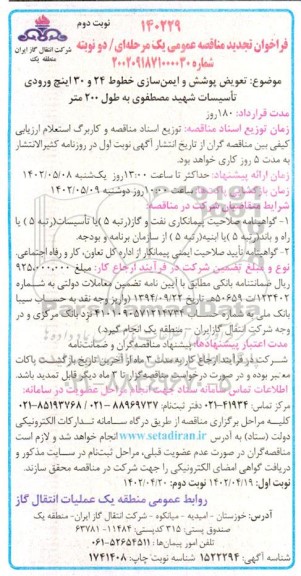 نوبت دوم
۱۴۰۲۲۹
شرکت انتقال گاز ایران
منطقه یک
فراخوان تجدید مناقصه عمومی یک مرحله‌ای/ دو نوبته
شماره ۲۰۰۲۰۹۱۸۷۱۰۰۰۰۳۰
موضوع: تعویض پوشش و ایمن‌سازی خطوط ۲۴ و ۳۰ اینچ ورودی
تأسیسات شهید مصطفوی به طول ۲۰۰ متر
مدت قرارداد: ۱۸۰روز
زمان توزیع اسناد مناقصه: توزیع اسناد مناقصه و کاربرگ استعلام ارزیابی
کیفی بین مناقصه گران از تاریخ انتشار آگهی نوبت اول در روزنامه کثیرالانتشار
به مدت ۵ روز کاری خواهد بود.
زمان ارائه پیشنهاد: حداکثر تا ساعت ۱۳:۰۰روز یک‌شنبه ۱۴۰۲/۰۵/۰۸
زمان ساعت ۱۰:۰۰روز دوشنبه ۱۴۰۲/۰۵/۰۹
شرایط متقاضیان شرکت در مناقصه:
۱- گواهینامه صلاحیت پیمانکاری نفت و گاز(رتبه ۵) یا تأسیسات(رتبه ۵) یا
راه و باند(رتبه ۵) یا ابنیه(رتبه ۵) از سازمان برنامه و بودجه.
۲- گواهینامه تأیید صلاحیت ایمنی پیمانکار از اداره کل تعاون، کار و رفاه اجتماعی.
نوع و مبلغ تضمین شرکت در فرآیند ارجاع کار: مبلغ ۹۲۵،۰۰۰،۰۰۰
ریال ضمانتنامه بانکی مطابق با آیین نامه تضمین معاملات دولتی به شماره
۱۲۳۴۰۲/ت۵۰۶۵۹ه مورخ ۱۳۹۴/۰۹/۲۲ (واریز وجه نقد به حساب سیبا
بانک ملی به شماره نزد بانک مرکزی و در
وجه شرکت انتقال گازایران – منطقه یک انجام گیرد.)
مدت اعتبار پیشنهادها: پیشنهاد مناقصه‌گران و ضمانت‌نامه
شرکت در فرآیند ارجاع کار به مدت ۳ ماه از آخرین تاریخ بازگشت پاکات
معتبر بوده و در صورت درخواست مناقصه‌گزار تا ۳ ماه دیگر قابل تمدید باشد.
اطلاعات تماس سامانه ستاد جهت انجام مراحل عضویت در سامانه:
مرکز تماس: ۴۱۹۳۴-۰۲۱ دفتر ثبت‌نام: ۸۸۹۶۹۷۳۷-۰۲۱ / ۸۵۱۹۳۷۶۸-۰۲۱
کلیه مراحل برگزاری مناقصه از طریق درگاه سامانه تدارکات الکترونیکی
دولت (ستاد) به آدرس www.setadiran.ir انجام خواهد شد و لازم است
مناقصه‌گران در صورت عدم عضویت قبلی، مراحل ثبت‌نام در سایت مذکور و
دریافت گواهی امضای الکترونیکی را جهت شرکت در مناقصه محقق سازند.
نوبت اول: ۱۴۰۲/۰۴/۱۹ نوبت دوم: ۱۴۰۲/۰۴/۲۰
روابط عمومی منطقه یک عملیات انتقال گاز
آدرس: خوزستان - امیدیه - میانکوه - شرکت انتقال گاز ایران- منطقه یک
صندوق پستی: ۳۱۵ کدپستی: ۱۱۴۸۴- ۶۳۷۸۱
تلفن امور پیمان‌ها: ۵۲۶۵۴۵۱۱-۰۶۱
شناسه آگهی: ۱۵۲۲۲۹۴ شناسه نوبت چاپ: ۱۷۴۱۴۰۸